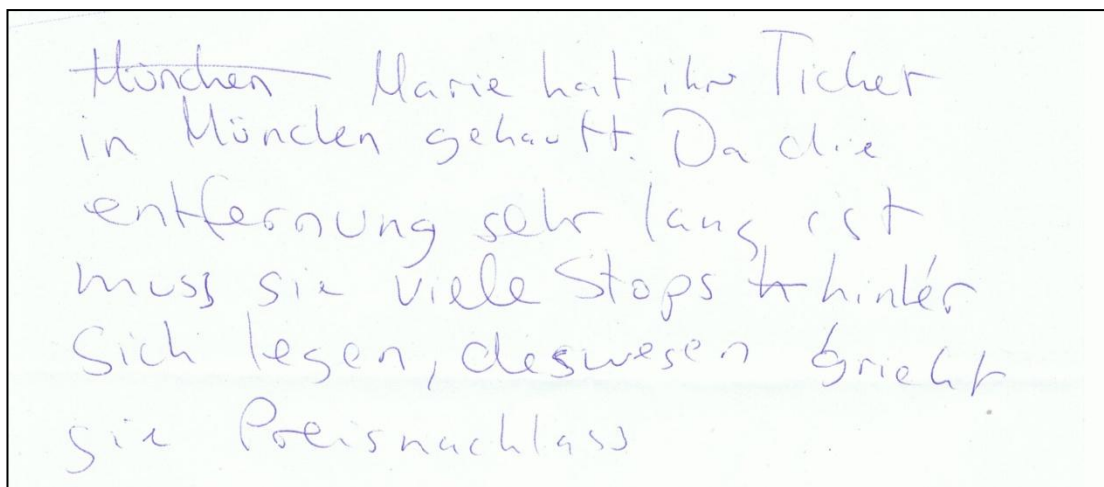 München Marie hat ihr Ticket
in München gekauft. Da die
entfernung sehr lang ist
muss sie viele Stops hinter
sich legen, deswegen kriekt
sie Preisnachlass